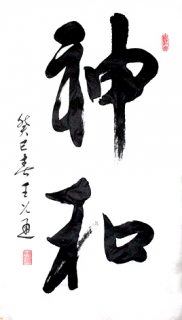 神和
癸巳春王以通